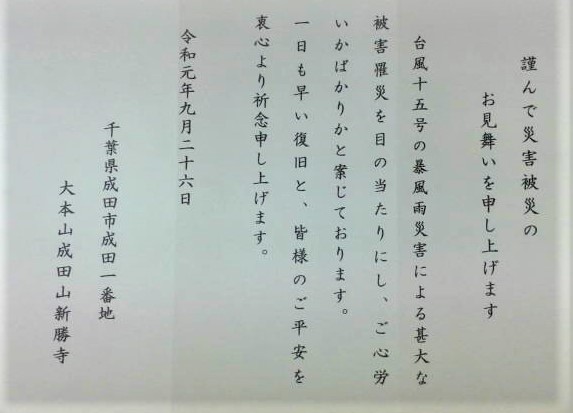 謹んで災害被災の
お見舞いを申し上げます
台風十五号の暴風雨災害による甚大な
被害罹災を目の当たりにし、ご心労
いかばかりかと案じております。
一日も早い復旧と、皆様のご平安を
衷心より祈念申し上げます。
令和元年九月二十六日
千葉県成田市成田一番地
大本山成田山新勝寺